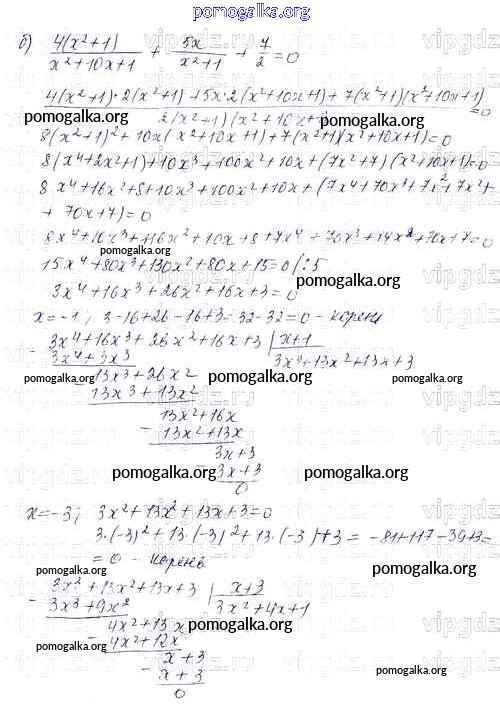 pomogalka.org
б) 4(x²+1)/(x²+10x+1) + 5x/(x²+1) + 7/2 = 0
(4(x²+1)·2(x²+1)+5x·2(x²+10x+1)+7(x²+1)(x²+10x+1))/(2(x²+1)(x²+10x+1)) = 0
pomogalka.org pomogalka.org
8(x²+1)²+10x(x²+10x+1)+7(x²+1)(x²+10x+1)=0
8(x⁴+2x²+1)+10x³+100x²+10x+(7x²+7)(x²+10x+1)=0
8x⁴+16x²+8+10x³+100x²+10x+(7x⁴+70x³+7x²+7x²+
+70x+7)=0
pomogalka.org
8x⁴+10x³+116x²+10x+8+7x⁴+70x³+14x²+70x+7=0
15x⁴+80x³+130x²+80x+15=0 /:5
pomogalka.org
3x⁴+16x³+26x²+16x+3=0
x=-1; 3-16+26-16+3=32-32=0 - корень
pomogalka.org
- 3x⁴+16x³+26x²+16x+3 | x+1
3x⁴+3x³ 3x⁴+13x²+13x+3
pomogalka.org pomogalka.org pomogalka.org
13x³+26x²
13x³+13x²
13x²+16x
- 13x²+13x
3x+3
pomogalka.org pomogalka.org
- 3x+3
0
x=-3; 3x²+13x²+13x+3=0
3·(-3)²+13·(-3)²+13·(-3)+3 = -81+117-39+3=
= 0 - корень
pomogalka.org pomogalka.org
- 3x³+13x²+13x+3 | x+3
3x³+9x² 3x²+4x+1
4x²+13x
pomogalka.org pomogalka.org
- 4x²+12x
x+3
- x+3
pomogalka.org pomogalka.org
0